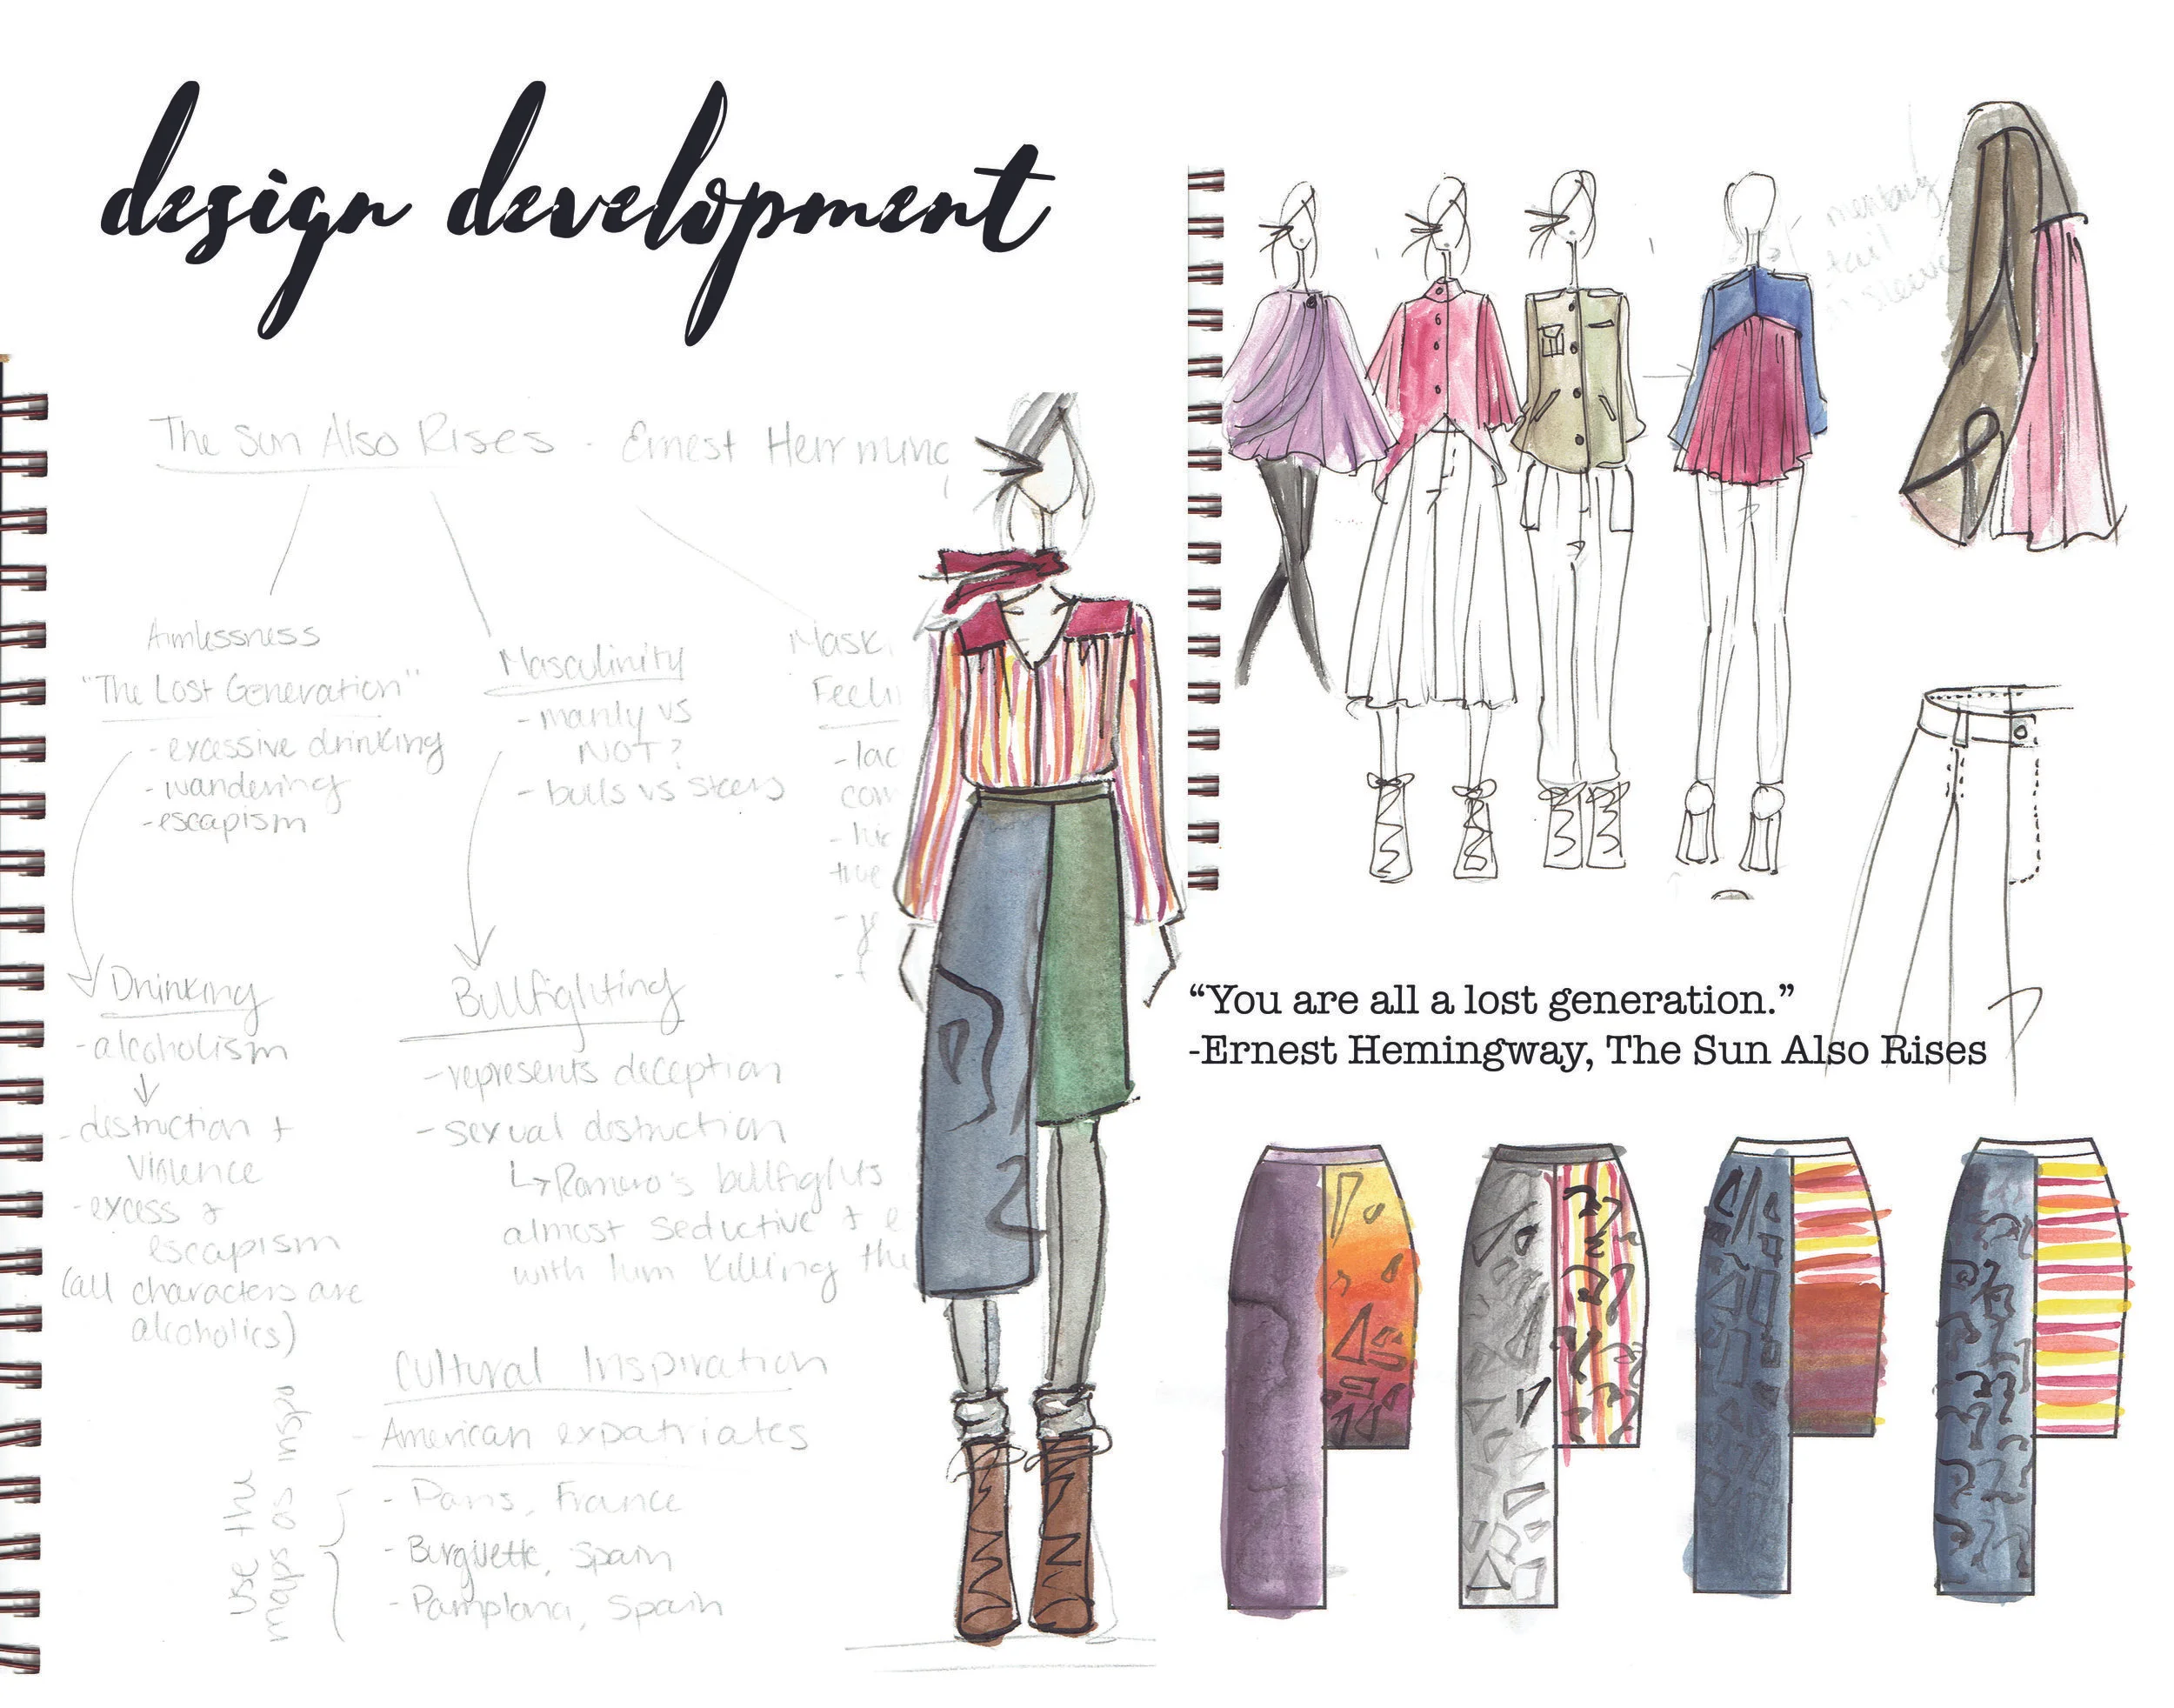 design development
The Sun Also Rises - Ernest Herrming
Aimlessness
"The Lost Generation"
- excessive drinking
- wandering
- escapism
Masculinity
- manly vs
NOT?
- bulls vs steers
Mask
Feeli
- lac
com
- hid
true
Drinking
- alcoholism
- distruction +
violence
- excess &
escapism
(all characters are
alcoholics)
Bullfighting
- represents deception
- sexual distruction
↳ Romero's bullfights
almost seductive + e
with him killing the
Cultural Inspiration
- American expatriates
- Paris, France
- Burguette, Spain
- Pamplona, Spain
use the
maps as inspo
tail
sleeve
“You are all a lost generation.”
-Ernest Hemingway, The Sun Also Rises